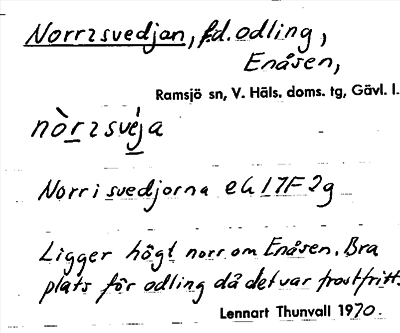 Norrsvedjan, f.d. odling,
Enåsen,
Ramsjö sn, V. Häls. doms. tg, Gävl. l.
nòrsvéja
Norr i svedjorna ek 17F 2g
Ligger högt norr om Enåsen. Bra
plats för odling då det var frostfritt.
Lennart Thunvall 1970.